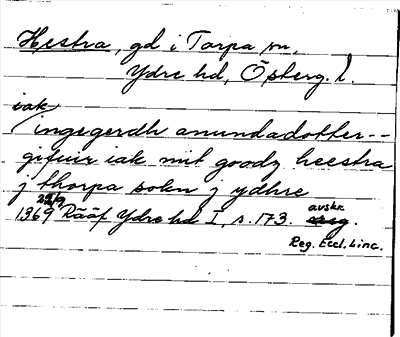 Hestra, gd i Torpa sn,
Ydre hd, Österg. l.
iak
ingegerdh anundadotter--
gifuir iak mit goodz heestra
j thorpa sokn j ydhre
22/9
1369 Rääf Ydre hd I, s. 173. avskr.
Reg. Eccl. Linc.